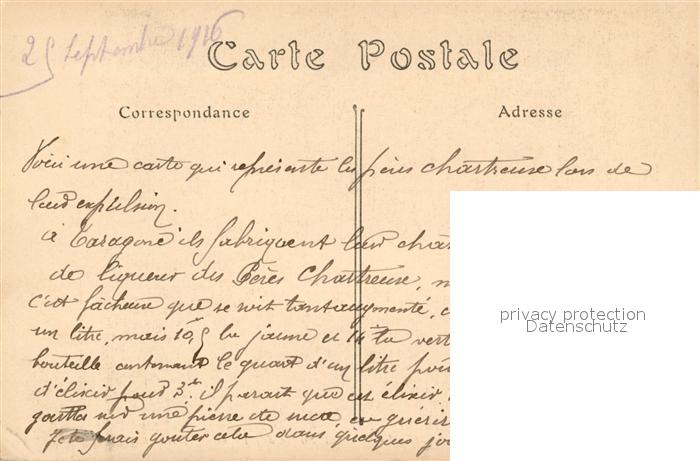 25 Septembre 1916
Carte Postale
Correspondance
Adresse
Voici une carte qui représente les pères chartreuse lors de
leur explulsion.
à Taragone ils fabriquent leur char
de liqueur des Pères Chartreuse,
c'est fâcheuse que se soit tant augmenté,
un litre, mais 10,5 la jaune et 14 la vert
bouteille contenant le quart d'un litre
d'élixir pour 3 il parait que cet élixir
gouttes sur une pierre de
goûter cela dans quelques jo
privacy protection
Datenschutz